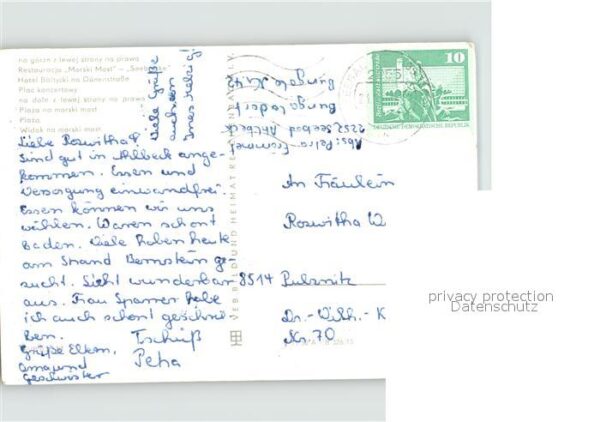 na górze z lewej strony na prawo
Restauracja „Morski Most" –
Hotel Bałtycki na
Plac koncertowy
na dole z lewej strony na prawo
Plaża na morski most
Plaża
Widok na morski most
Liebe Roswitha!
Sind gut in Ahlbeck ange-
kommen. Essen und
Versorgung einwandfrei.
Essen können wir uns
wählen. Waren schon
baden. Viele haben heute
am Strand Bernstein ge-
sucht. Sieht wunderbar
aus. Frau Sparrer habe
ich auch schon geschrie
ben. Tschüß
Petra
Grüße Eltern,
Oma und
Geschwister
Viele Grüße
auch von
Ines
VEB BILD UND HEIMAT REICHENBACH
Abs: Petra
2252 Seebad Ahlbeck
10
DEUTSCHE DEMOKRATISCHE REPUBLIK
An Fräulein
Roswitha W
8514 Pulsnitz
Dr.-Wilh.-K
Nr. 70
privacy protection
Datenschutz